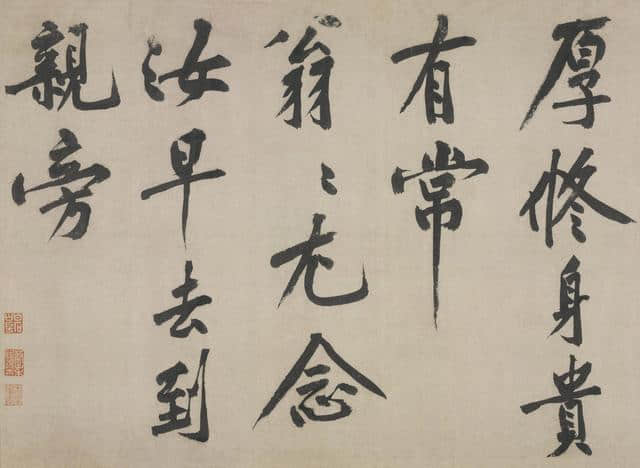 厚修身貴
有常
翁〻尤念
汝早去到
親旁